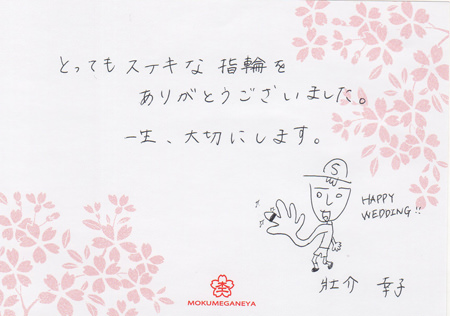 とってもステキな 指輪を
ありがとうございました。
一生、大切にします。
S
HAPPY
WEDDING!!
壮介 幸子
MOKUMEGANEYA